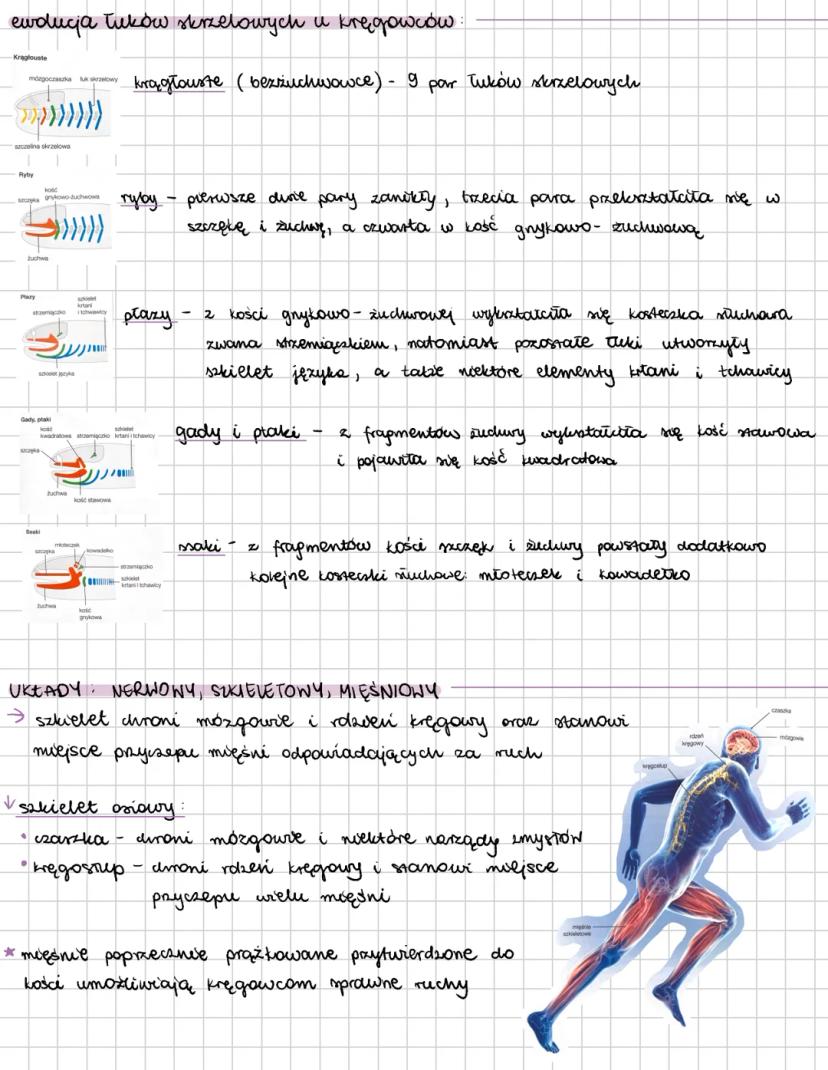 ewolucja łuków skrzelowych u kręgowców:
Krągłouste
mózgoczaszka łuk skrzelowy
szczelina skrzelowa
krągłouste (bezżuchwowce) - 9 par łuków skrzelowych
Ryby
szczęka
kość
gnykowo-żuchwowa
żuchwa
ryby - pierwsze dwie pary zanikły, trzecia para przekształciła się w
szczękę i żuchwę, a czwarta w kość gnykowo-żuchwową
Płazy
strzemiączko
szkielet
krtani
i tchawicy
szkielet języka
płazy - z kości gnykowo-żuchwowej wykształciła się kosteczka słuchowa
zwana strzemiączkiem, natomiast pozostałe łuki utworzyły
szkielet języka, a także niektóre elementy krtani i tchawicy
Gady, ptaki
szczęka
kość
kwadratowa
strzemiączko
szkielet
krtani i tchawicy
żuchwa
kość stawowa
gady i ptaki - z fragmentów żuchwy wykształciła się kość stawowa
i pojawiła się kość kwadratowa
Ssaki
szczęka
młoteczek
kowadełko
strzemiączko
szkielet
krtani i tchawicy
żuchwa
kość
gnykowa
ssaki - z fragmentów kości szczęk i żuchwy powstały dodatkowo
kolejne kosteczki słuchowe: młoteczek i kowadełko
UKŁADY: NERWOWY, SZKIELETOWY, MIĘŚNIOWY
→ szkielet chroni mózgowie i rdzeń kręgowy oraz stanowi
miejsce przyczepu mięśni odpowiadających za ruch
↓ szkielet osiowy:
• czaszka - chroni mózgowie i niektóre narządy zmysłów
• kręgosłup - chroni rdzeń kręgowy i stanowi miejsce
przyczepu wielu mięśni
* mięśnie poprzecznie prążkowane przytwierdzone do
kości umożliwiają kręgowcom sprawne ruchy
czaszka
mózgowie
rdzeń
kręgowy
kręgosłup
mięśnie
szkieletowe